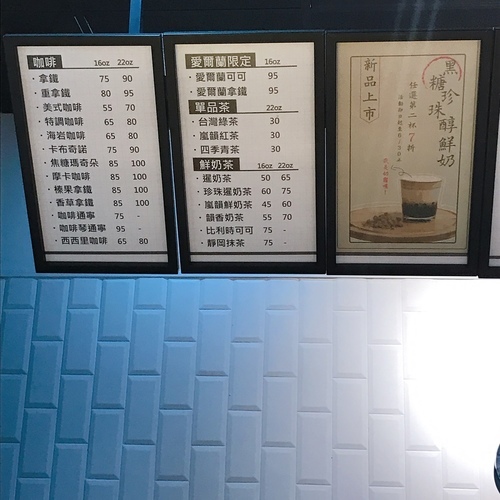 咖啡 16oz 22oz
·拿鐵 75 90
·重拿鐵 80 95
·美式咖啡 55 70
·特調咖啡 65 80
·海岩咖啡 65 80
·卡布奇諾 75 90
·焦糖瑪奇朵 85 100
·摩卡咖啡 85 100
·榛果拿鐵 85 100
·香草拿鐵 85 100
·咖啡通寧 75 -
·咖啡琴通寧 95 -
·西西里咖啡 65 80
愛爾蘭限定 16oz
·愛爾蘭可可 95
·愛爾蘭拿鐵 95
單品茶 22oz
·台灣綠茶 30
·嵐韻紅茶 30
·四季青茶 30
鮮奶茶 16oz 22oz
·暹奶茶 50 65
·珍珠暹奶茶 60 75
·嵐韻鮮奶茶 45 60
·韻香奶茶 55 70
·比利時可可 75 -
·靜岡抹茶 75 -
黑糖珍珠醇鮮奶
任選第二杯7折
新品上市